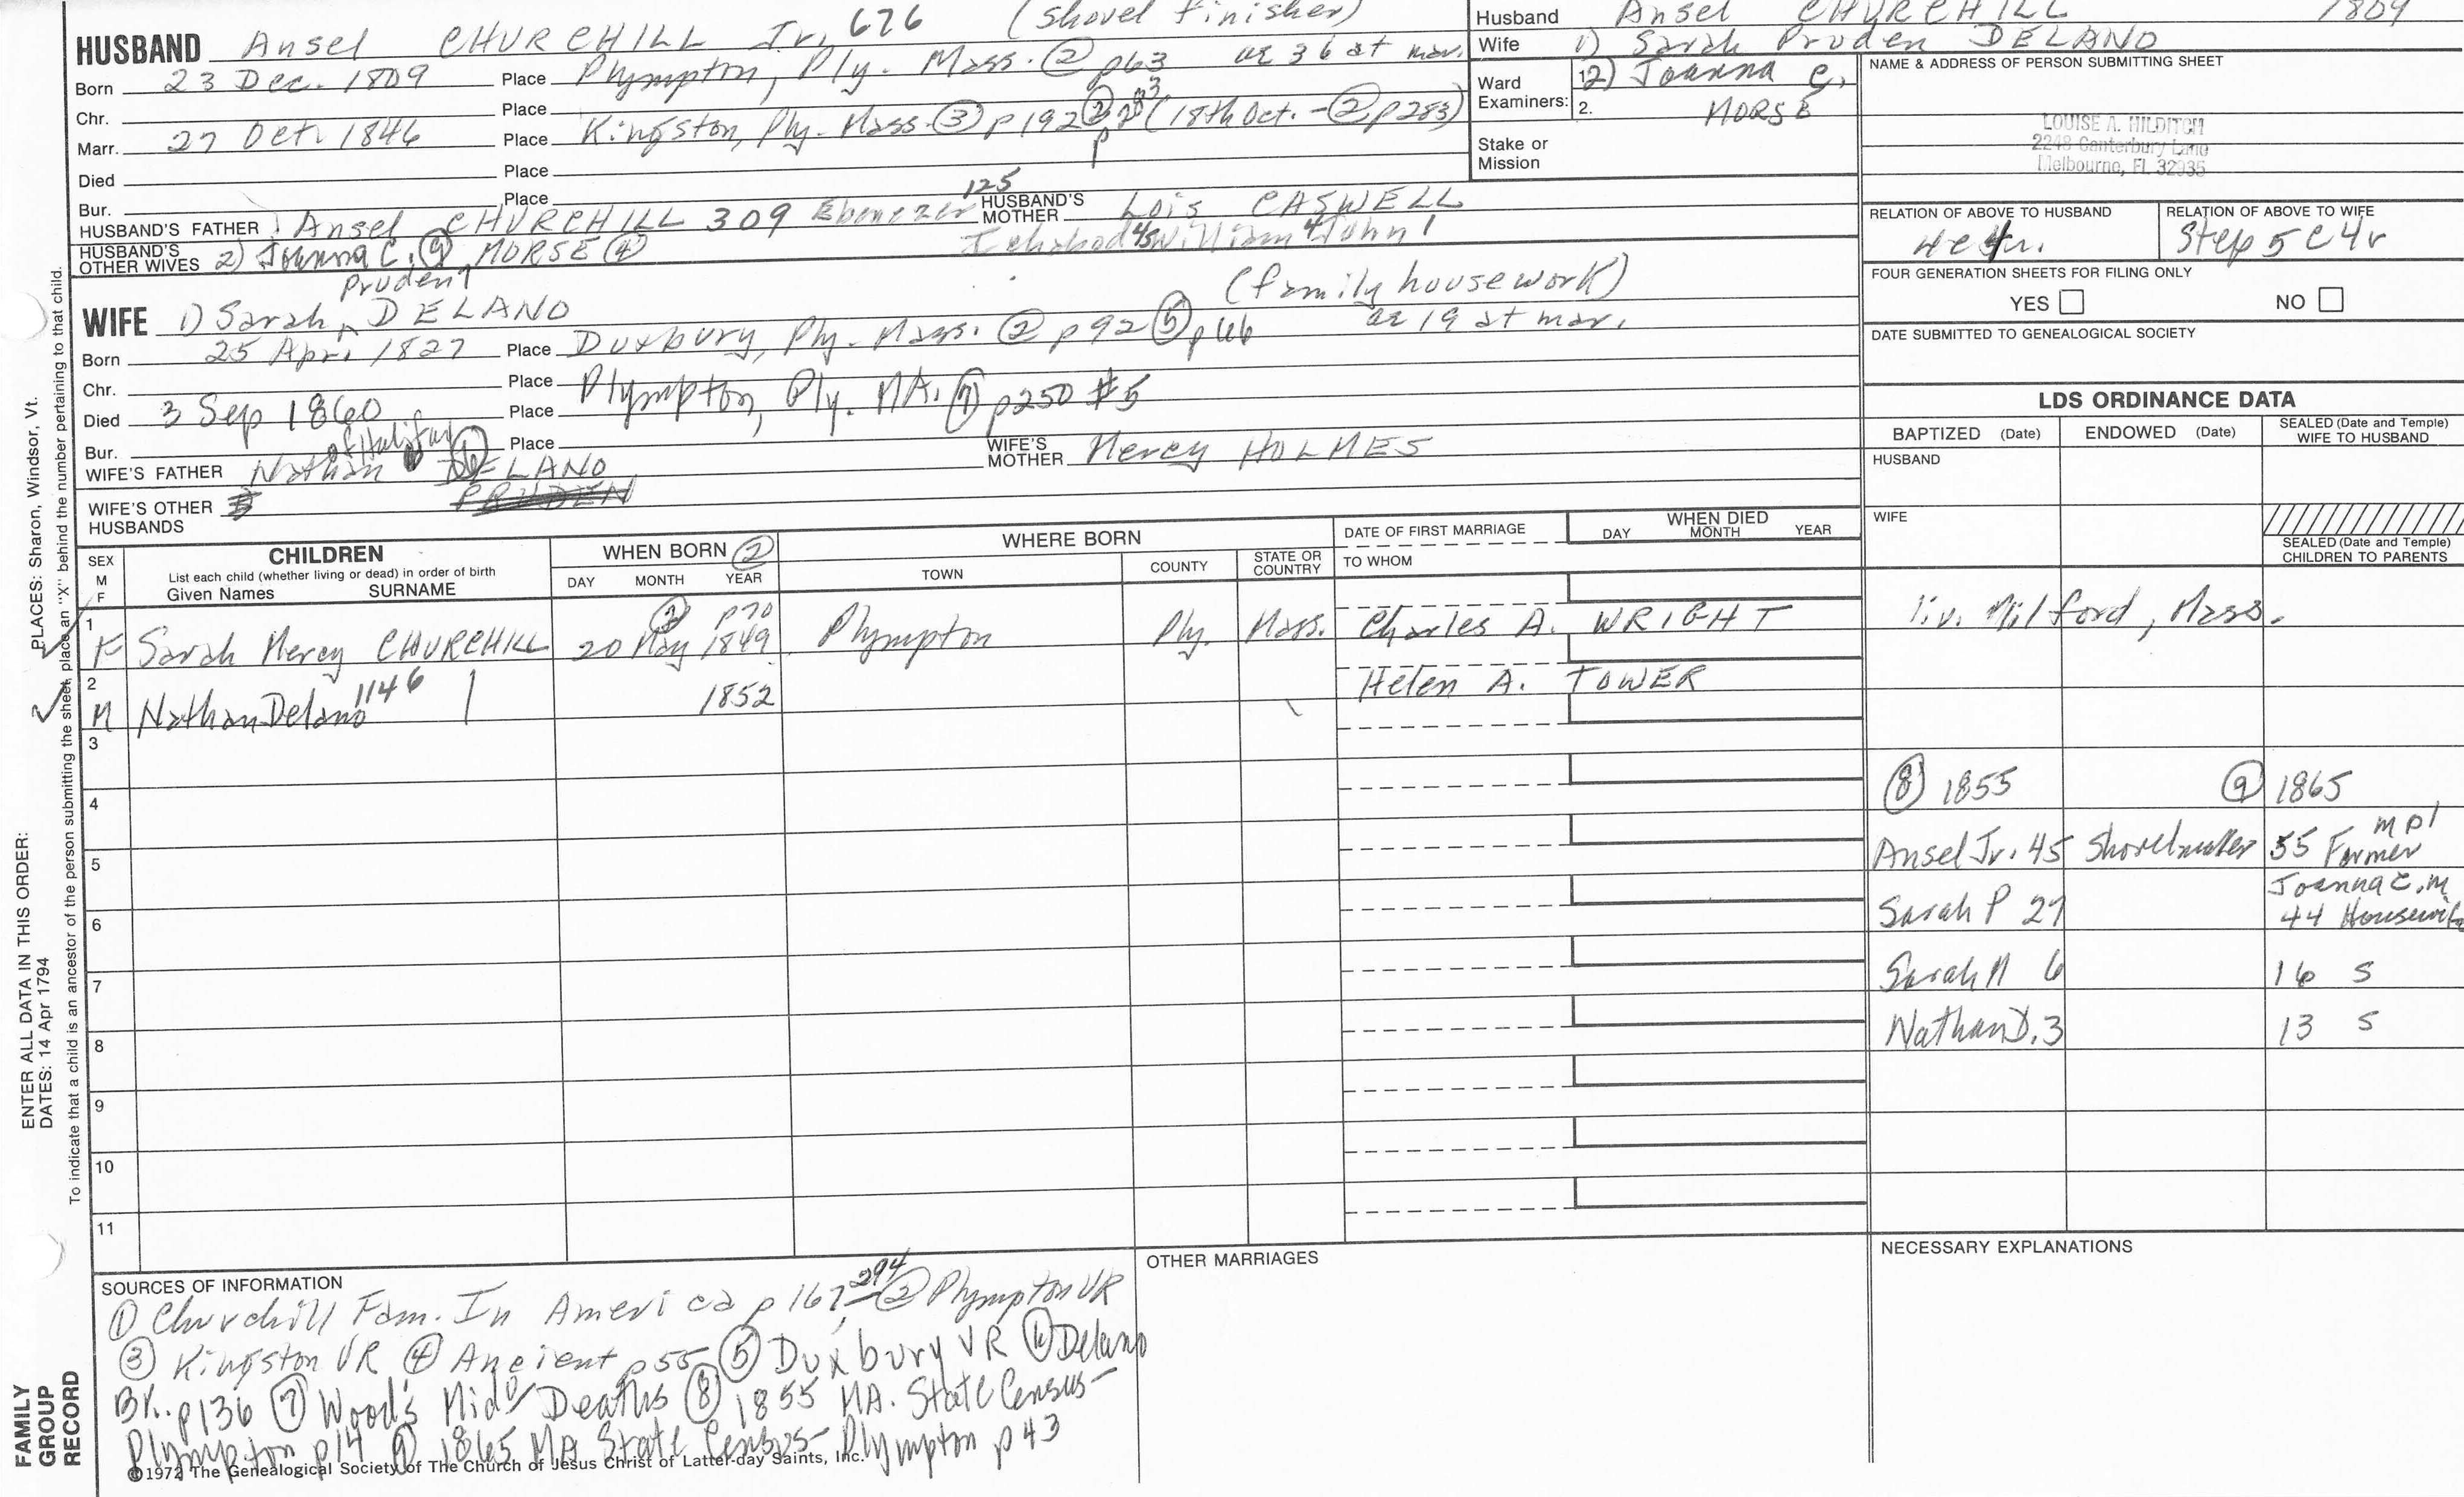 HUSBAND Ansel CHURCHILL Jr. 676 (shovel finisher)
Born 23 Dec. 1809 Place Plympton, Ply. Mass. ② p63 ae 36 at mar.
Chr. Place
Marr. 27 Oct. 1846 Place Kingston, Ply. Mass. ③ p192 ② p283 (18th Oct. - ② p283)
Died Place
Bur. Place
HUSBAND'S FATHER Ansel CHURCHILL 309 Ebenezer 125 HUSBAND'S MOTHER Lois CASWELL
Ichabod 45 William 4 John 1
HUSBAND'S OTHER WIVES 2) Joanna C. ⑨ MORSE ④
Pruden
WIFE 1) Sarah ^ DELANO (family housework)
Born 25 Apr. 1827 Place Duxbury, Ply. Mass. ② p92 ⑤ p66 ae 19 at mar.
Chr. Place
Died 3 Sep 1860 Place Plympton, Ply. MA. ⑦ p250 #5
Bur. Place
of Halifax
WIFE'S FATHER Nathan DELANO WIFE'S MOTHER Mercy HOLMES
WIFE'S OTHER HUSBANDS PRUDEN
Husband Ansel CHURCHILL 1809
Wife 1) Sarah Pruden DELANO
Ward Examiners: 1. 2) Joanna C.
2. MORSE
Stake or Mission
NAME & ADDRESS OF PERSON SUBMITTING SHEET
LOUISE A. HILDITCH
2248 Canterbury Lane
Melbourne, FL 32935
RELATION OF ABOVE TO HUSBAND RELATION OF ABOVE TO WIFE
4c4r. Step 5c4r
FOUR GENERATION SHEETS FOR FILING ONLY
YES NO
DATE SUBMITTED TO GENEALOGICAL SOCIETY
LDS ORDINANCE DATA
BAPTIZED (Date) ENDOWED (Date) SEALED (Date and Temple) WIFE TO HUSBAND
HUSBAND
WIFE
SEALED (Date and Temple) CHILDREN TO PARENTS
SEX M F
CHILDREN
List each child (whether living or dead) in order of birth
Given Names SURNAME
WHEN BORN ②
DAY MONTH YEAR
WHERE BORN
TOWN COUNTY STATE OR COUNTRY
DATE OF FIRST MARRIAGE
TO WHOM
WHEN DIED
DAY MONTH YEAR
② p70
1 F Sarah Mercy CHURCHILL 20 May 1849 Plympton Ply. Mass. Charles A. WRIGHT liv. Milford, Mass.
2 M Nathan Delano 1146 1852 Helen A. TOWER
3
4 ⑧ 1855 ⑨ 1865
5 Ansel Jr. 45 Shovelmaker 55 Farmer mpl
6 Sarah P 27 Joanna C. M 44 Housewife
7 Sarah M 6 16 S
8 Nathan D. 3 13 S
9
10
11
SOURCES OF INFORMATION
① Churchill Fam. In America p 167, 294 ② Plympton VR
③ Kingston VR ④ Ancient p55 ⑤ Duxbury VR ⑥ Delano
Bk. p136 ⑦ Wood's Mid° Deaths ⑧ 1855 MA. State Census-
Plympton p14 ⑨ 1865 MA State Census- Plympton p43
©1972 The Genealogical Society of The Church of Jesus Christ of Latter-day Saints, Inc.
OTHER MARRIAGES
NECESSARY EXPLANATIONS
PLACES: Sharon, Windsor, Vt.
ENTER ALL DATA IN THIS ORDER:
DATES: 14 Apr 1794
To indicate that a child is an ancestor of the person submitting the sheet, place an "X" behind the number pertaining to that child.
FAMILY
GROUP
RECORD